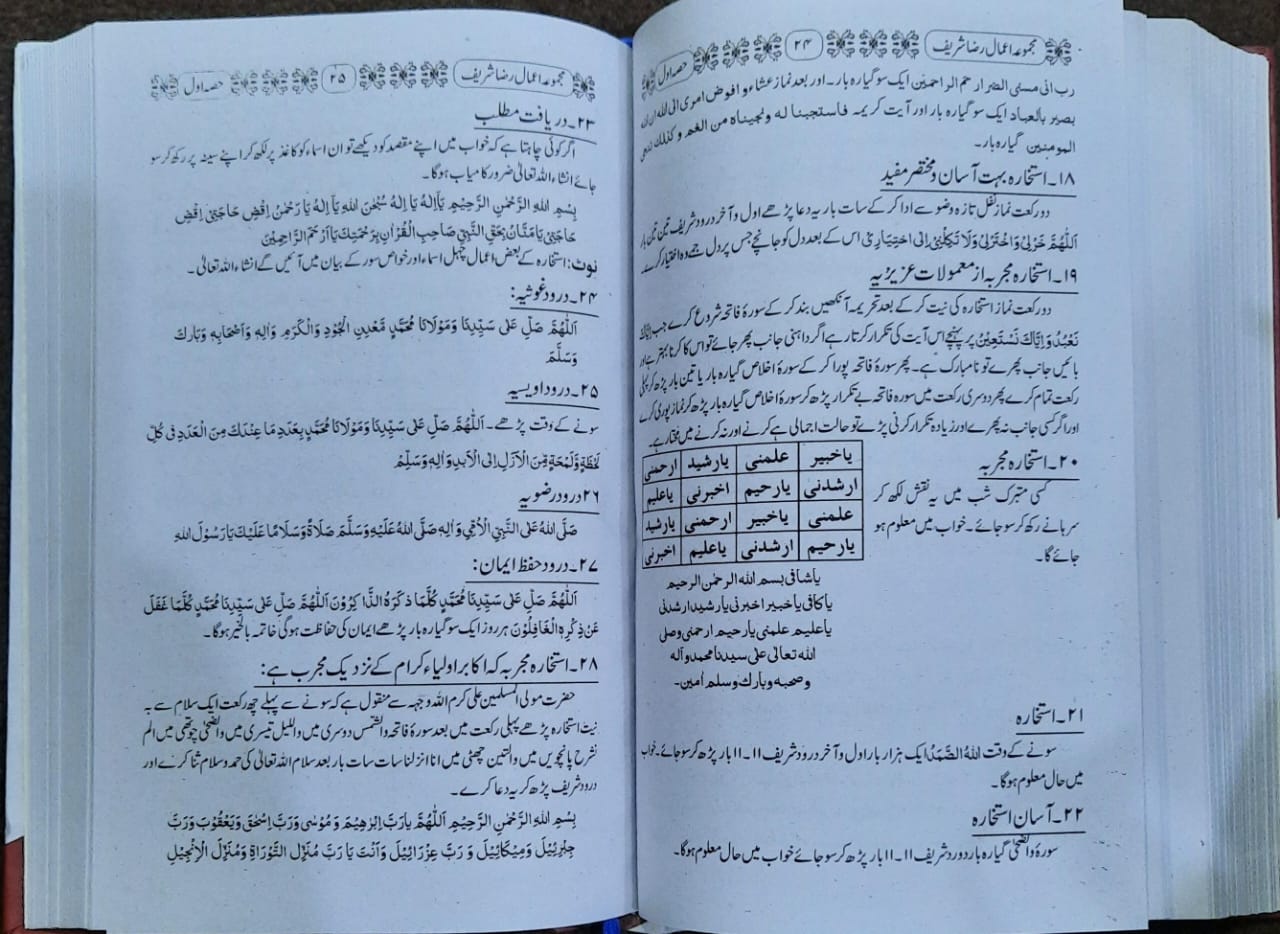 مجموعہ اعمال رضا شریف ۲۴ حصہ اول
رب انی مسنی الضر ارحم الراحمین ایک سو گیارہ بار۔ اور بعد نماز عشاء و افوض امری الی اللہ ان اللہ
بصیر بالعباد ایک سو گیارہ بار اور آیت کریمہ فاستجبنا لہ ونجیناہ من الغم و کذلک ننجی
المومنین گیارہ بار۔
۱۸۔ استخارہ بہت آسان و مختصر مفید
دو رکعت نماز نفل تازہ وضو سے ادا کر کے سات بار یہ دعا پڑھے اول و آخر درود شریف تین تین بار
اَللّٰهُمَّ خِرْلِیْ وَاخْتَرْلِیْ وَلَا تَکِلْنِیْ اِلٰی اخْتِیَارِیْ اس کے بعد دل کو جانچے جس پر دل جمے وہ اختیار کرے۔
۱۹۔ استخارہ مجربہ از معمولات عزیزیہ
دو رکعت نماز استخارہ کی نیت کر کے بعد تحریمہ آنکھیں بند کر کے سورۂ فاتحہ شروع کرے جب اِیَّاكَ
نَعْبُدُ وَاِیَّاكَ نَسْتَعِیْنُ پر پہنچے اس آیت کی تکرار کرتا رہے اگر داہنی جانب پھر جائے تو اس کا کرنا بہتر ہے اور
بائیں جانب پھرے تو نا مبارک ہے۔ پھر سورۂ فاتحہ پورا کر کے سورۂ اخلاص گیارہ بار یا تین بار پڑھ کر پہلی
رکعت تمام کرے پھر دوسری رکعت میں سورہ فاتحہ بے تکرار پڑھ کر سورۂ اخلاص گیارہ بار پڑھ کر نماز پوری کرے
اور اگر کسی جانب نہ پھرے اور زیادہ تکرار کرنی پڑے تو حالت اجمالی ہے کرنے اور نہ کرنے میں مختار ہے۔
۲۰۔ استخارہ مجربہ
کسی متبرک شب میں یہ نقش لکھ کر
سرہانے رکھ کر سو جائے۔ خواب میں معلوم ہو
جائے گا۔
یاخبیر علمنی یارشید ارحمنی
ارشدنی یارحیم اخبرنی یاعلیم
علمنی یاخبیر ارحمنی یارشید
یارحیم ارشدنی یاعلیم اخبرنی
یاشافی بسم اللہ الرحمٰن الرحیم
یاکافی یاخبیر اخبرنی یارشید ارشدنی
یاعلیم علمنی یارحیم ارحمنی وصلی
اللہ تعالی علی سیدنا محمد وآلہ
وصحبہ وبارك وسلم امین۔
۲۱۔ استخارہ
سونے کے وقت اَللهُ الصَّمَدُ ایک ہزار بار اول و آخر درود شریف ۱۱۔۱۱ بار پڑھ کر سو جائے۔ خواب
میں حال معلوم ہوگا۔
۲۲۔ آسان استخارہ
سورۂ والضحیٰ گیارہ بار درود شریف ۱۱۔۱۱ بار پڑھ کر سو جائے خواب میں حال معلوم ہوگا۔
مجموعہ اعمال رضا شریف ۲۵ حصہ اول
۲۳۔ دریافت مطلب
اگر کوئی چاہتا ہے کہ خواب میں اپنے مقصد کو دیکھے تو ان اسماء کو کاغذ پر لکھ کر اپنے سینہ پر رکھ کر سو
جائے انشاء اللہ تعالیٰ ضرور کامیاب ہوگا۔
بِسْمِ اللهِ الرَّحْمٰنِ الرَّحِیْمِ یَاۤاِلٰهُ یَا اِلٰهُ سُبْحٰنَ اللهِ یَاۤ اِلٰهُ یَا رَحْمٰنُ اِقْضِ حَاجَتِیْ اِقْضِ
حَاجَتِیْ یَا مَنَّانُ بِحَقِّ النَّبِیِّ صَاحِبِ الْقُرْاٰنِ بِرَحْمَتِكَ یَا اَرْحَمَ الرَّاحِمِیْنَ
نوٹ: استخارہ کے بعض اعمال چہل اسماء اور خواص سور کے بیان میں آئیں گے انشاء اللہ تعالیٰ۔
۲۴۔ درود غوثیہ:
اَللّٰهُمَّ صَلِّ عَلٰی سَیِّدِنَا وَمَوْلَانَا مُحَمَّدٍ مَّعْدِنِ الْجُوْدِ وَالْکَرَمِ وَاٰلِهٖ وَاَصْحَابِهٖ وَبَارِكْ
وَسَلَّمَ
۲۵۔ درود اویسیہ
سونے کے وقت پڑھے۔ اَللّٰهُمَّ صَلِّ عَلٰی سَیِّدِنَا وَمَوْلَانَا مُحَمَّدٍ بِعَدَدِ مَا عِنْدَكَ مِنَ الْعَدَدِ فِی کُلِّ
لَحْظَةٍ وَّلَمْحَةٍ مِّنَ الْاَزَلِ اِلَی الْاَبَدِ وَاٰلِهٖ وَسَلِّمْ
۲۶ درود رضویہ
صَلَّی اللهُ عَلَی النَّبِیِّ الْاُمِّیِّ وَاٰلِهٖ صَلَّی اللهُ عَلَیْهِ وَسَلَّمَ صَلَاةً وَّسَلَامًا عَلَیْكَ یَا رَسُوْلَ اللهِ
۲۷۔ درود حفظ ایمان:
اَللّٰهُمَّ صَلِّ عَلٰی سَیِّدِنَا مُحَمَّدٍ کُلَّمَا ذَکَرَهُ الذَّاکِرُوْنَ اَللّٰهُمَّ صَلِّ عَلٰی سَیِّدِنَا مُحَمَّدٍ کُلَّمَا غَفَلَ
عَنْ ذِکْرِهِ الْغَافِلُوْنَ ہر روز ایک سو گیارہ بار پڑھے ایمان کی حفاظت ہوگی خاتمہ بالخیر ہوگا۔
۲۸۔ استخارہ مجربہ کہ اکابر اولیاء کرام کے نزدیک مجرب ہے:
حضرت مولی المسلمین علی کرم اللہ وجہہ سے منقول ہے کہ سونے سے پہلے چھ رکعت ایک سلام سے بہ
نیت استخارہ پڑھے پہلی رکعت میں بعد سورۂ فاتحہ والشمس دوسری میں واللیل تیسری میں والضحیٰ چوتھی میں الم
نشرح پانچویں میں والتین چھٹی میں انا انزلنا سات سات بار بعد سلام اللہ تعالیٰ کی حمد و سلام ثنا کرے اور
درود شریف پڑھ کر یہ دعا کرے۔
بِسْمِ اللهِ الرَّحْمٰنِ الرَّحِیْمِ اَللّٰهُمَّ یَا رَبَّ اِبْرٰهِیْمَ وَ مُوْسٰی وَرَبَّ اِسْحٰقَ وَیَعْقُوْبَ وَرَبَّ
جِبْرَئِیْلَ وَمِیْکَائِیْلَ وَ رَبَّ عِزْرَائِیْلَ وَاَنْتَ یَا رَبَّ مُنَزِّلَ التَّوْرَاةِ وَمُنَزِّلَ الْاِنْجِیْلِ